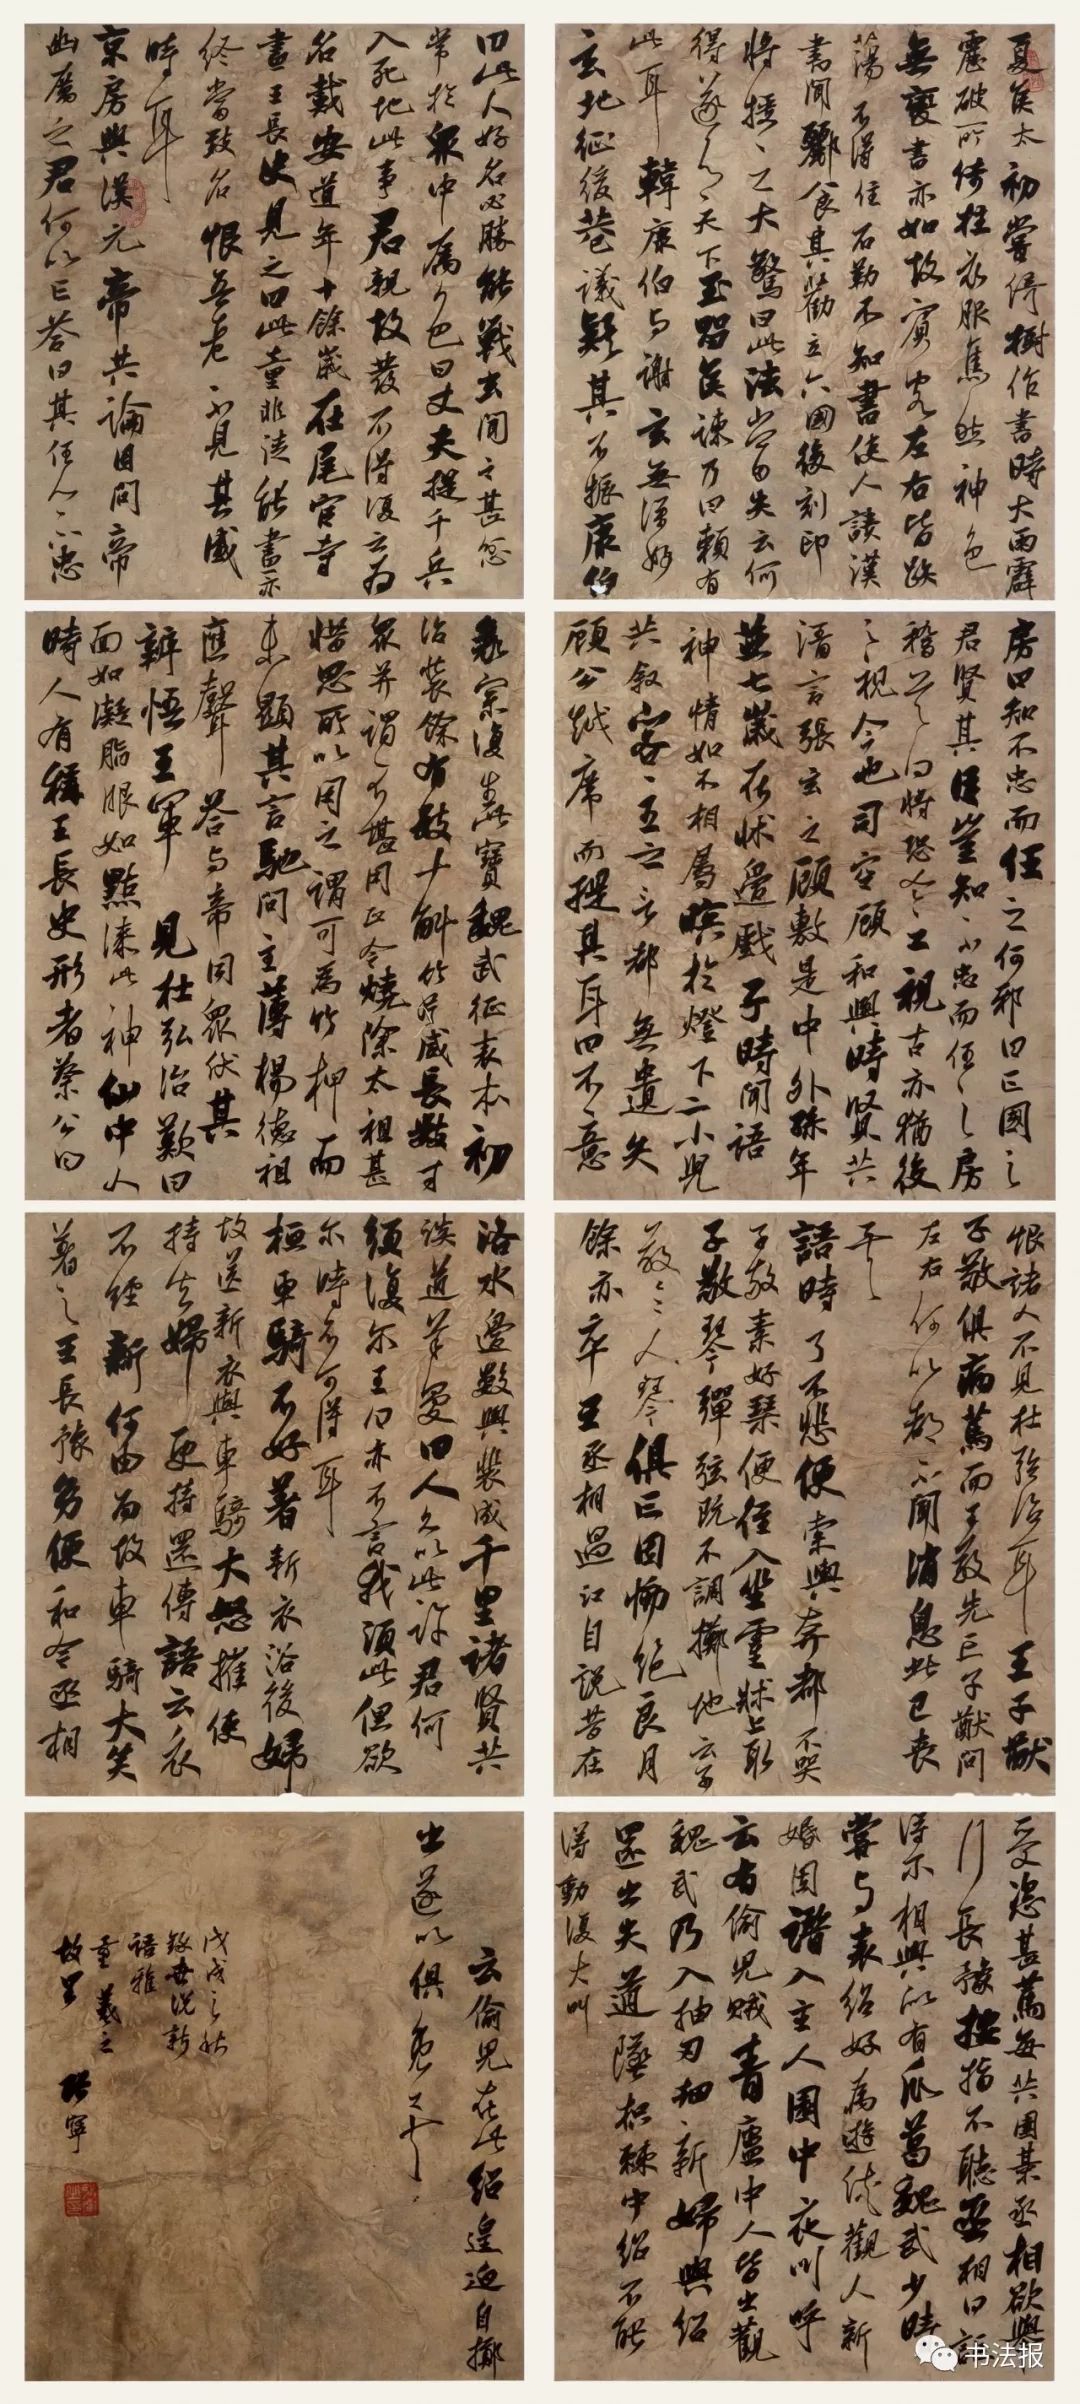 夏侯太初嘗倚樹作書時大雨霹
靂破所倚柱衣服焦然神色
無變書亦如故賓客左右皆跌
蕩不得住石勒不知書使人讀漢
書聞酈食其勸立六國後刻印
將授之大驚曰此法當失云何
得遂有天下至留侯諫乃曰賴有
此耳韓康伯与謝玄無深好
玄北征後巷議疑其不振康伯
曰此人好名必勝能戰玄聞之甚忿
常於衆中厲色曰丈夫提千兵
入死地此事君親故發不得復云為
名戴安道年十餘歲在瓦官寺
畫王長史見之曰此童非徒能畫亦
終當致名恨吾老不見其盛
時耳
京房與漢元帝共論因問帝
幽厲之君何以亡答曰其任人不忠
房曰知不忠而任之何邪曰亡國之
君賢其臣豈知不忠而任之房
稽首曰將恐今之視古亦猶後
之視今也司空顧和與時賢共
清言張玄之顧敷是中外孫年
並七歲在牀邊戲于時聞語
神情如不相屬瞑於燈下二小兒
共叙客主之言都無遺失
顧公越席而提其耳曰不意
衰宗復生此寶魏武征袁本初
治裝餘有數十斛竹片咸長數寸
衆并謂不堪用正令燒除太祖甚
惜思所以用之謂可為竹椑而
未顯其言馳問主薄楊德祖
應聲答与帝同衆伏其
辯悟王軍見杜弘治歎曰
面如凝脂眼如點漆此神仙中人
時人有稱王長史形者蔡公曰
恨諸人不見杜弘治耳王子猷
子敬俱病篤而子敬先亡子猷問
左右何以都不聞消息此已喪
矣
語時了不悲便索輿奔都不哭
子敬素好琴便徑入坐靈牀上取
子敬琴彈弦既不調擲地云子
敬〻人琴俱亡因慟絕良月
餘亦卒王丞相過江自說昔在
洛水邊數與裴成千里諸賢共
談道羊曼曰人久以此許君何
須復尔王曰亦不言我須此但欲
尔時不可得耳
桓車騎不好著新衣浴後婦
故送新衣與車騎大怒催使
持去婦更持還傳語云衣
不經新何由而故車騎大笑
著之王長豫幼便和令丞相
受恣甚篤每共圍棊丞相欲舉
行長豫按指不聽丞相曰詎
得尔相與似有瓜葛魏武少時
嘗与袁紹好為遊俠觀人新
婚因潛入主人園中夜叫呼
云有偷兒賊青廬中人皆出觀
魏武乃入抽刃劫新婦與紹
還出失道墜枳棘中紹不能
得動復大叫
云偷兒在此紹遑迫自擲
出遂以俱免
戊戌之秋
錄世說新
語雅
重羲之
故里
張寧
书法报